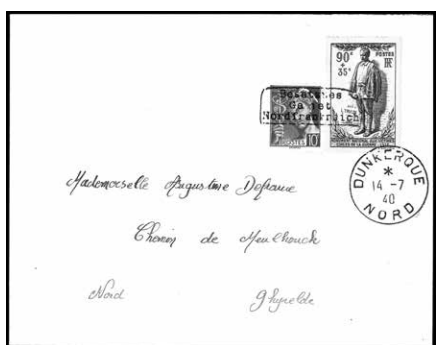 90c
+
35c
POSTES
RF
Besetztes
Gebiet
Nordfrankreich
POSTES 10c
DUNKERQUE
*
14 -7
40
NORD
Mademoiselle Augustine Defrance
Chemin de
Nord Ghyvelde